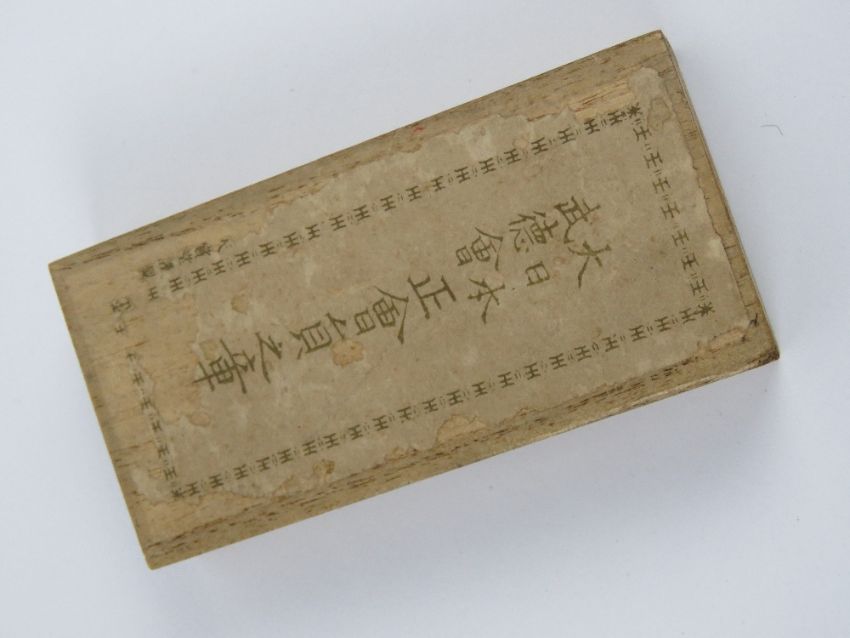 大日本
武德會
正會員之章